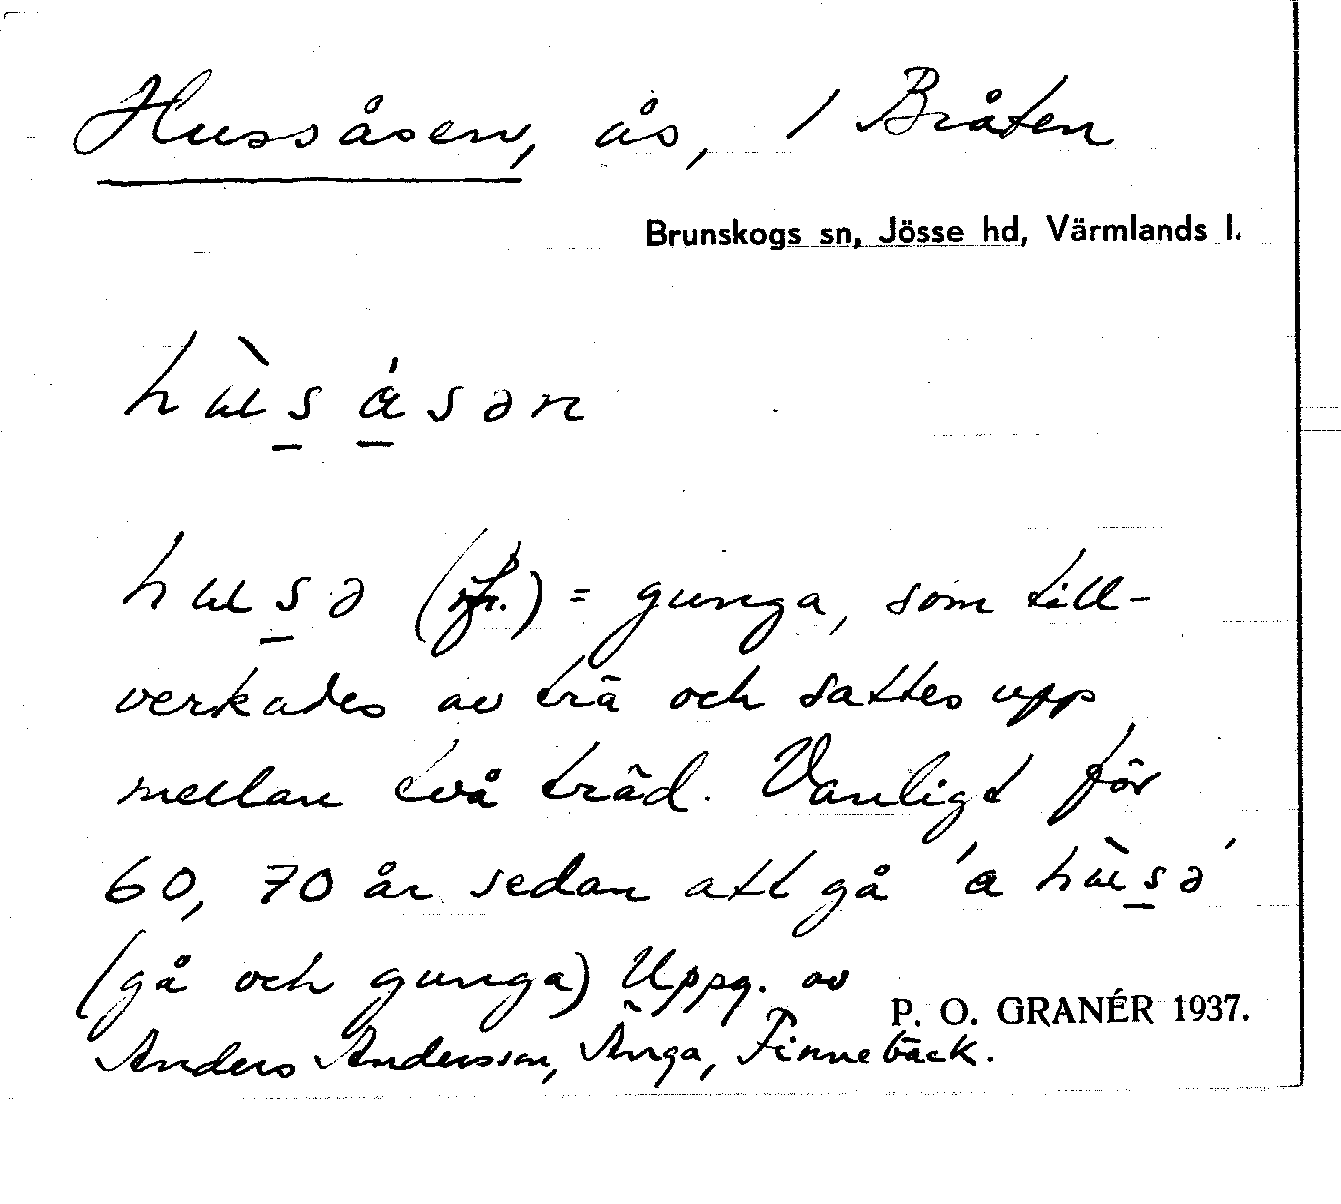 Hussåsen, ås, 1 Bråten
Brunskogs sn, Jösse hd, Värmlands l.
hùsåsən
husə ( ) = gunga, som till-
verkades av trä och sattes upp
mellan två träd. Vanligt för
60, 70 år sedan att gå 'a hùsə'
(gå och gunga) Uppg. av
P. O. GRANÉR 1937.
Anders Andersson, Änga, Finnebäck.